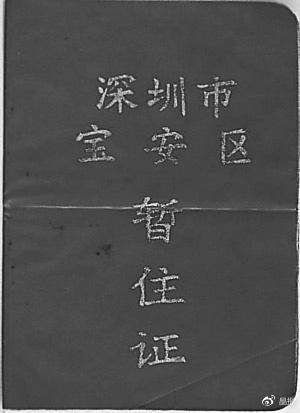 深圳市
宝安区
暂
住
证